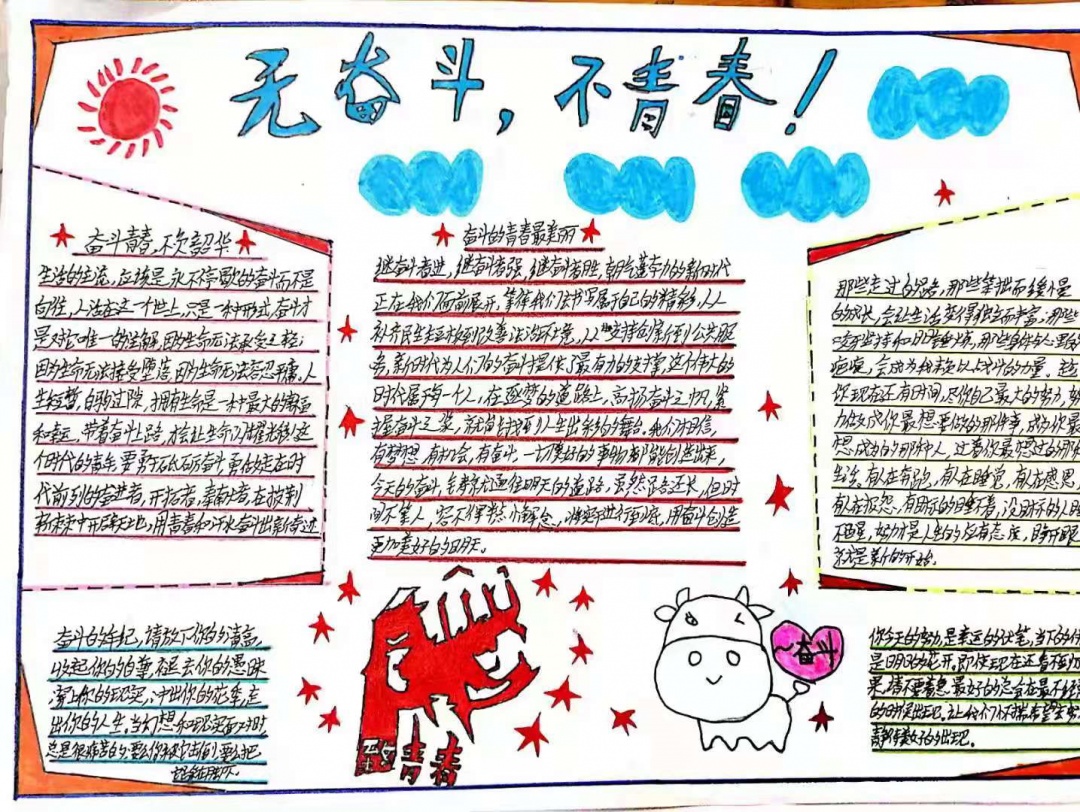 无奋斗，不青春！
奋斗青春，不负韶华
生活的主流，应该是永不停歇的奋斗而不是
人活在这一个世上，只是一种形式，奋斗才
是对它唯一的诠释，因为生命无法承受之轻；
因为生命无法接受堕落，因为生命无法容忍平庸。人
生短暂，白驹过隙，拥有生命是一种最大的幸运
和幸运，带着奋斗上路，
时代的青年要勇于砥砺奋斗，勇做走在时
代前列的奋进者，开拓者，奉献者，在披荆
斩棘中开辟天地，用青春和汗水奋斗出新奇迹
奋斗的青春最美丽
继奋斗者进，继奋斗者强，继奋斗者胜，朝气蓬勃的新时代
正在我们面前展开，等待我们去书写属于自己的精彩，从
补齐民生短板到改善法治环境，从支持创业到公共服
务，新时代为人们的奋斗提供了最有力的支撑，这个伟大的
时代属于每一个人，在逐梦的道路上，高扬奋斗之帆，紧
握奋斗之桨，就能找到人生出彩的舞台，我们相信，
有梦想，有机会，有奋斗，一切美好的事物都能创造出来，
今天的奋斗，会标定通往明天的道路，虽然路还长，但时
间不等人，容不得懈怠，将奋斗进行到底，用奋斗创造
更加美好的明天。
那些走过的路，那些笨拙而缓慢
的成长，会让生活变得独立而丰富；那些
咬牙坚持和
疤痕，会成为我
你现在还有时间，尽你自己最大的努力，努
力做成你最想要做的那件事，成为你最
想成为的那种人，过着你最想过的那种
生活。有人在奔跑，有人在睡觉，有人在感恩，
有人在抱怨，有目标的睡不着，没目标的人睡
不醒，努力才是人生的应有态度，睁开眼
就是新的开始。
奋斗的年纪，请放下你的清高，
收起你的自尊，
穿上你的现实，冲出你的花季，走
出你的人生。当幻想和现实面对时，
总是很痛苦的，要么你被击倒，要么把
踩在脚下。
致青春
奋斗
你今天的努力，是幸运的伏笔，当下的付
是明日的花开。即使现在还看不到
果，请不要着急，最好的总会在最不经
的时候出现。让我们怀揣希望去努
静待美好的出现。